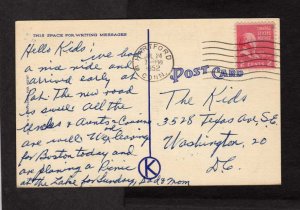 THIS SPACE FOR WRITING MESSAGES
Hello Kids! I've had
a nice ride and
arrived early at
Pat. The new road
is swell. All the
Uncles & Aunts & Cousins
are well. We're leaving
for Boston today and
are planning a Picnic
at the Lake for Sunday. Dad & Mom
HARTFORD
CONN.
1952
POST CARD
The Kids
3528 Texas Ave, S.E.
Washington, 20
D.C.
K